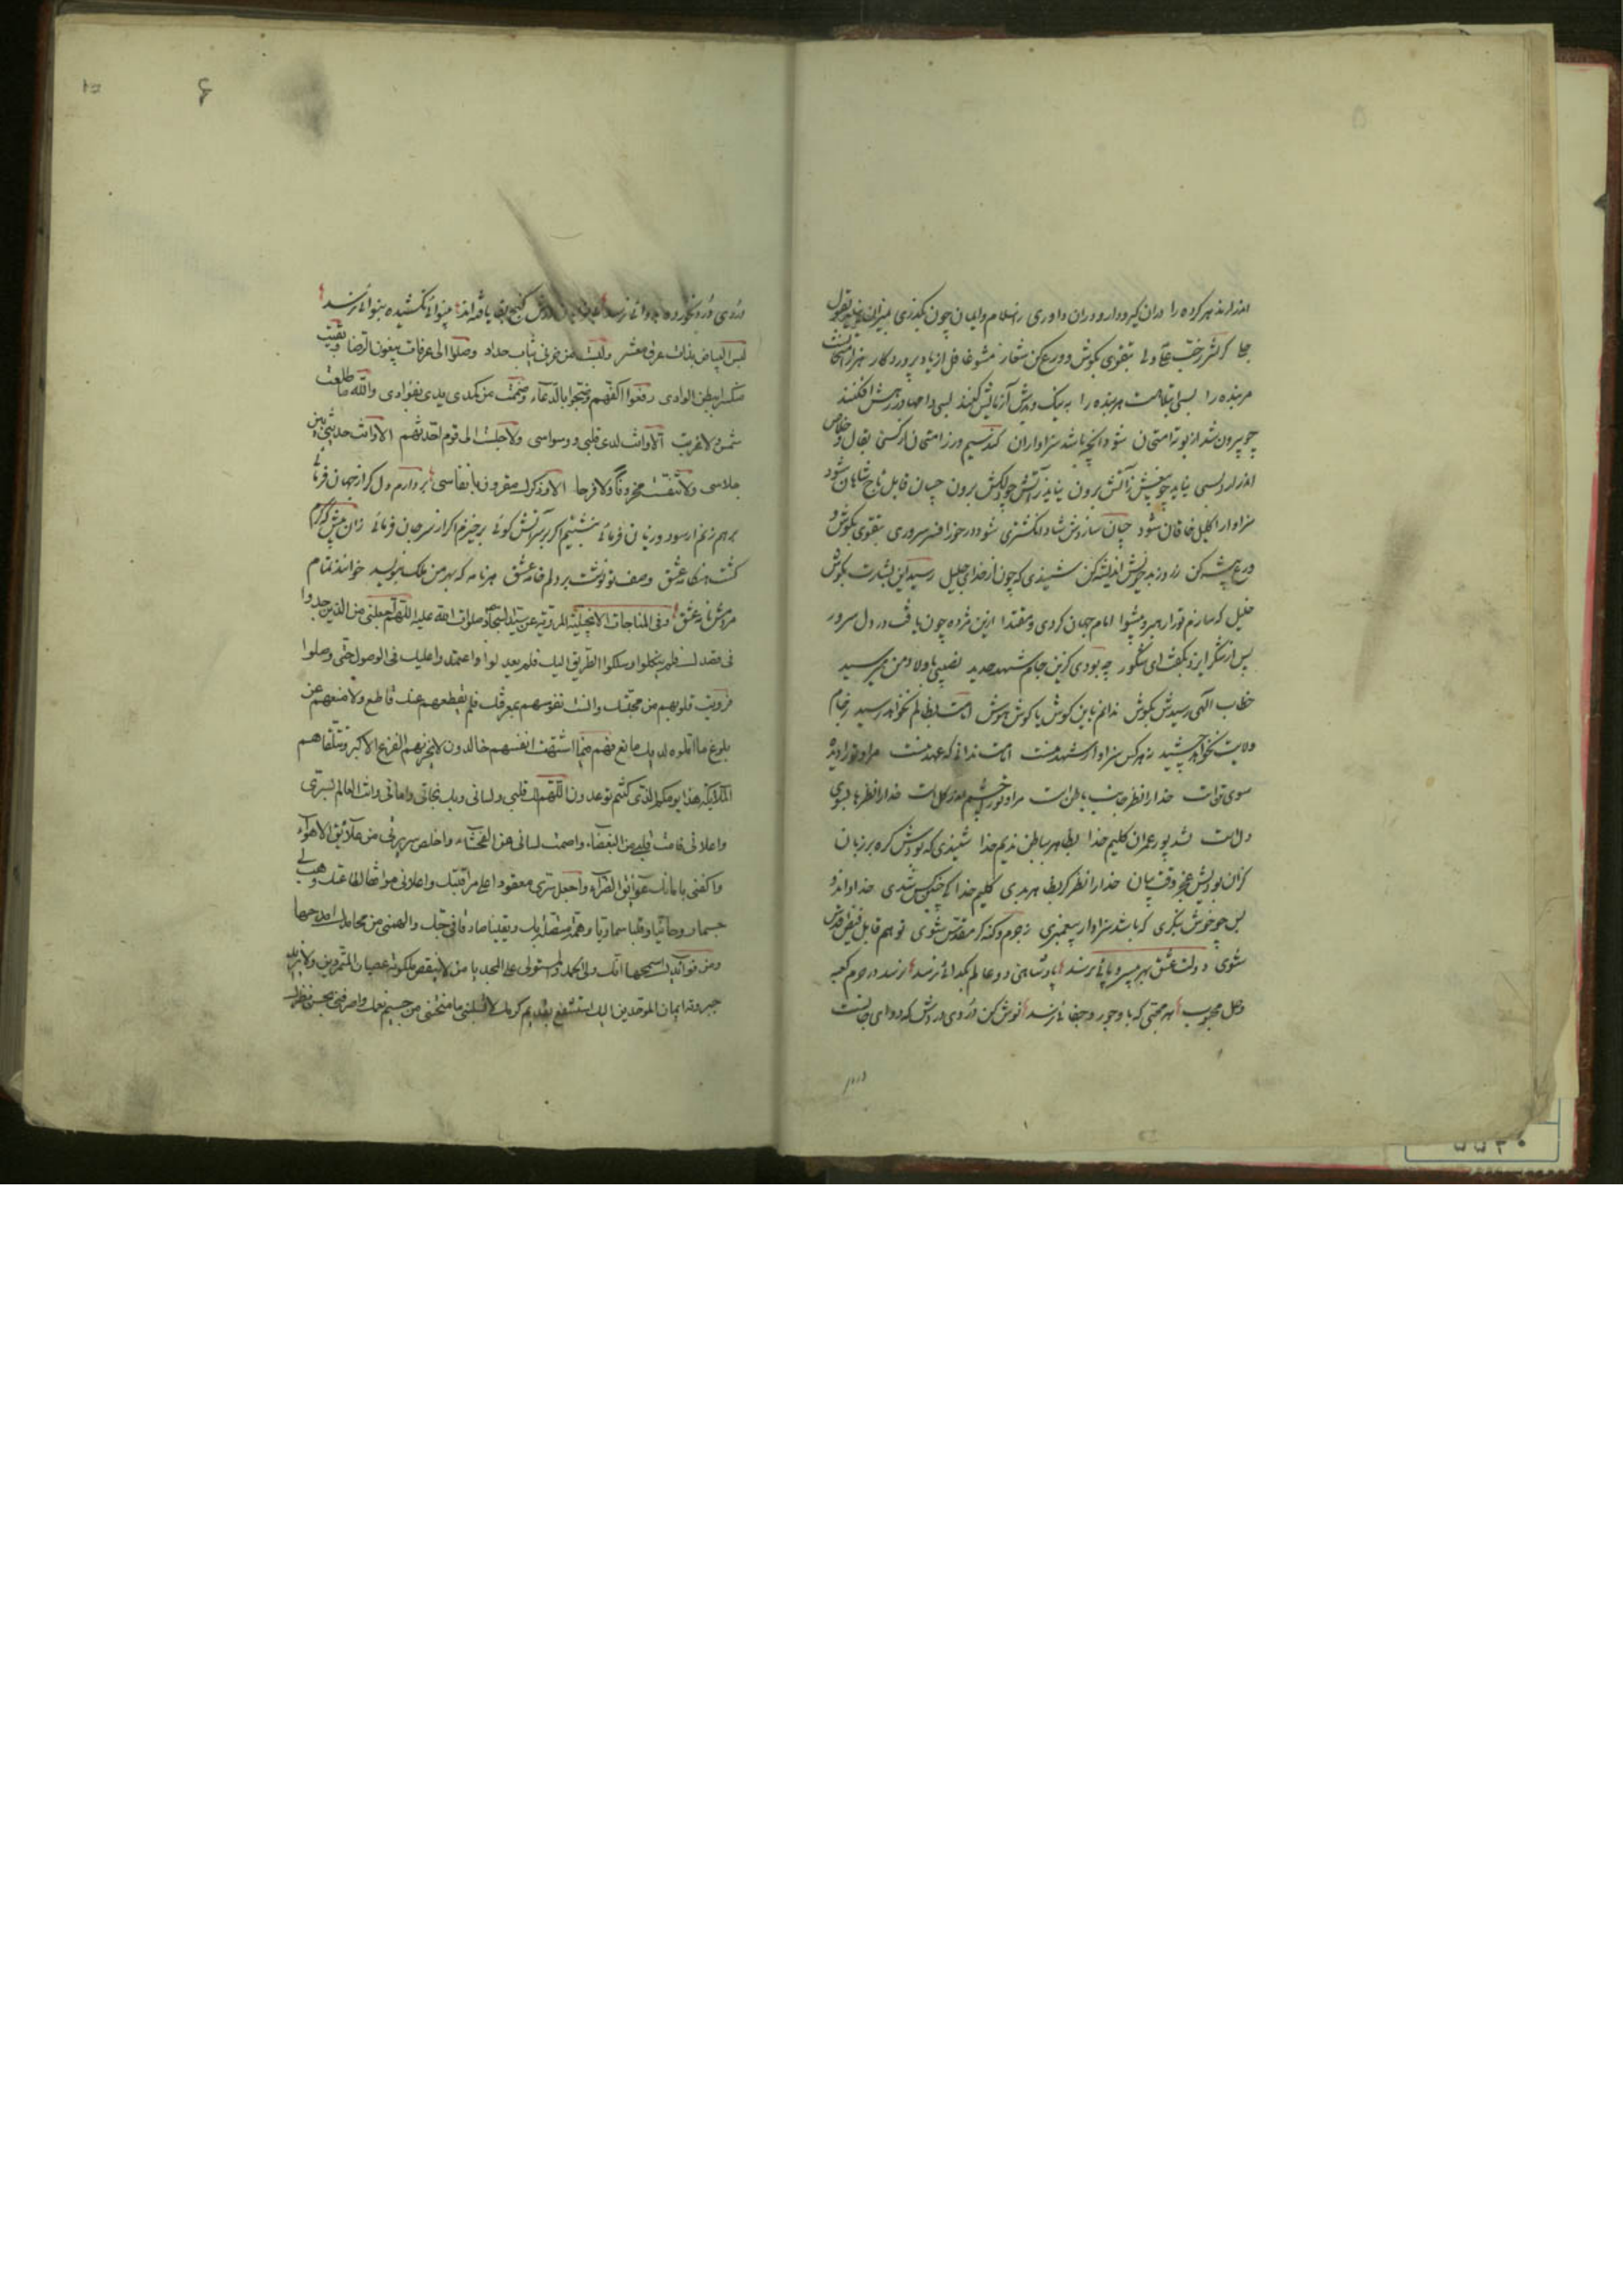 اندازند هر کرده را دران گیر و دار و دران داوری ز اسلام و ایمان چون بگذری
بتقوی بکوش و ورع کن شعار مشو غافل از یاد پروردگار
مر بنده را بسی ابتلاهست هر بنده را به نیک و بدش آزمایش کنند بسی دامها در رهش افکنند
چو بیرون شد از بوته امتحان شود آنچه باشد سزاوار آن
برون نیاید ز آتش چو بیغش برون چسان قابل تاج شاهان شود
سزاوار اکلیل خاقان شود چسان سازدش شاه انگشتری شود در خور افسر سروری بتقوی بکوش و
ورع پیشه کن ز روز بد خویش اندیشه کن شنیدی که چون از خدای جلیل رسید این بشارت بگوش
خلیل که سازم تو را رهبر و پیشوا امام جهان کردی و مقتدا ازین مژده چون یافت در دل سرور
پس از شکر ایزد بگفت ای شکور چه بودی کزین جام شهد جدید نصیبی باولاد من میرسید
خطاب الهی رسیدش بگوش ندانم باین گوش یا گوش هوش امامت بظالم نخواهد رسید ز جام
ولایت نخواهد چشید نه هر کس سزاوار شهد منست امامت ندانی که عهد منست
سوی تن است خدا را نظر جانب باطن است خدا را نظرها بسوی
دل است شد پور عمران کلیم خدا بظاهر بباطن ندیم خدا شنیدی که بودش گره بر زبان
کزان بودیش عجز وقت بیان خدا را نظر گر بظاهر بدی کلیم خدا کی چنین کس شدی
که باشد سزاوار پیغمبری ز جرم و گنه گر مقدس شوی تو هم قابل فیض اقدس
شوی دولت عشق بهر بی سر و پائی نرسد پادشاهی دو عالم بگدائی نرسد نرسد در حرم کعبه
وصل محبوب هر محبتی که با وجور و جفائی نرسد نوش کن دُردی دردش که دوای جانست
دردی
دُردی درد نخورده بدوائی نرسد گنج بقا یافته‌اند بینوائی نکشیده بنوائی نرسد
لبس البیاض بذات عرق معشر ولبست من حزنی ثیاب حداد وصلوا الی عرفات یبغون الرضا وبقیت
ببطن الوادی رفعوا اکفهم وضجوا بالدعاء وضممت من کمدی یدی بفؤادی والله ما طلعت
شمس ولا غربت الا وانت لدی قلبی ووسواسی ولا جلست الی قوم احدثهم الا وانت حدیثی بین
جلاسی ولا تنفست محزونا ولا فرحا الا وذکرک مقرون بانفاسی بردارم دل گر از جهان فرمائی
بر هم زنم ار سود و زیان فرمائی بنشینم اگر بر سر آتش گوئی برخیزم اگر از سر جان فرمائی زان پیش که گرم
گشت هنگامه عشق وصف تو نوشت بر دلم خامه عشق هر نامه که بهر من ملک بنوشتند خواندند تمام
مردمش نامه عشق وفی المناجات الانجیلیة المرویة عن سید السجاد صلوات الله علیه اللهم اجعلنی من الذین جدوا
فی قصدک فلم ینکلوا وسلکوا الطریق الیک فلم یعدلوا واعتمدوا علیک فی الوصول حتی وصلوا
فرویت قلوبهم من محبتک وانست نفوسهم بمعرفتک فلم یقطعهم عنک قاطع ولا منعهم عن
بلوغ ما املوه لدیک مانع فهم فیما اشتهت انفسهم خالدون لا یحزنهم الفزع الاکبر وتتلقاهم
الملائکة هذا یومکم الذی کنتم توعدون اللهم لک قلبی ولسانی وبک نجاتی وامانی وانت العالم بسری
واعلانی فامت قلبی من البغضاء واصمت لسانی عن الفحشاء واخلص سریرتی من علائق الاهواء
واکفنی بامانک عوائق الضراء واجعل سری معقودا علی مراقبتک واعلانی موافقا لطاعتک وهب لی
جسما روحانیا وقلبا سماویا وهمة متصلة بک ویقینا صادقا فی حبک والهمنی من محامدک امدحها
ومن فوائدک اسمحها انک ولی الحمد والمستولی علی المجد یا من لا ینقص ملکوته عصیان المتمردین ولا یزید
جبروته ایمان الموحدین الیک استشفع بقدیم کرمک لا تسلبنی ما منحتنی من جسیم نعمک واصرفنی بحسن نظرک